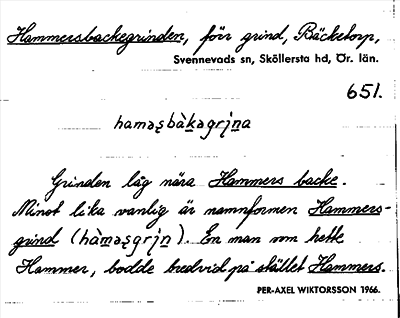 Hammersbackegrinden, förr grind, Bäcketorp,
Svennevads sn, Sköllersta hd, Ör. län.
651.
haməʂbàkagrįna
Grinden låg nära Hammers backe.
Minst lika vanlig är namnformen Hammers-
grind (hàmaʂgrįn). En man som hette
Hammer, bodde bredvid på stället Hammers.
PER-AXEL WIKTORSSON 1966.